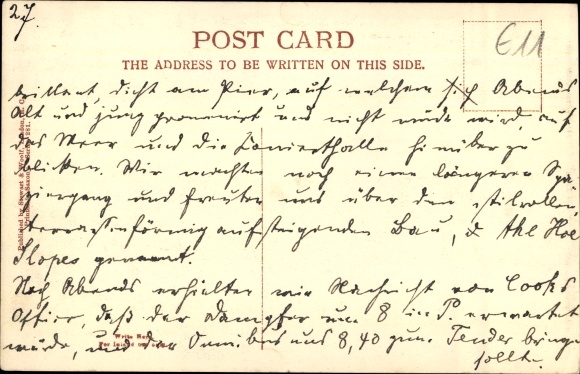 27.
POST CARD
THE ADDRESS TO BE WRITTEN ON THIS SIDE.
E11
brillant dicht am Pier, auf welchem sich Abends
Alt und jung promenirt und nicht müde wird, auf
das Meer und die hinüber zu
blicken. Wir machten noch einen längeren Spa
ziergang und freuten uns über den stilvollen
terrassenförmig aufsteigenden Bau, & the Hoe
Slopes genannt.
Noch Abends erhielten wir Nachricht von Cooks
Office, daß der Dampfer um 8 in P. erwartet
würde, und der Omnibus uns 8,40 zum Tender bringen
sollte.